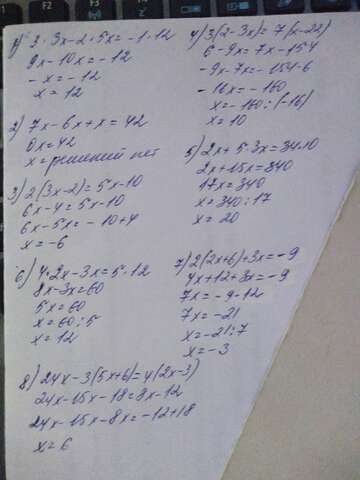 1) 3 · 3x - 2 · 5x = -1 · 12
9x - 10x = -12
-x = -12
x = 12
2) 7x - 6x + x = 42
0x = 42
x = решений нет
3) 2(3x-2) = 5x-10
6x - 4 = 5x - 10
6x - 5x = -10 + 4
x = -6
6) 4·2x - 3x = 5·12
8x - 3x = 60
5x = 60
x = 60 : 5
x = 12
4) 3(2-3x) = 7(x-22)
6 - 9x = 7x - 154
-9x - 7x = -154 - 6
-16x = -160
x = -160 : (-16)
x = 10
5) 2x + 5·3x = 34·10
2x + 15x = 340
17x = 340
x = 340 : 17
x = 20
7) 2(2x+6) + 3x = -9
4x + 12 + 3x = -9
7x = -9 - 12
7x = -21
x = -21 : 7
x = -3
8) 24x - 3(5x+6) = 4(2x-3)
24x - 15x - 18 = 8x - 12
24x - 15x - 8x = -12 + 18
x = 6